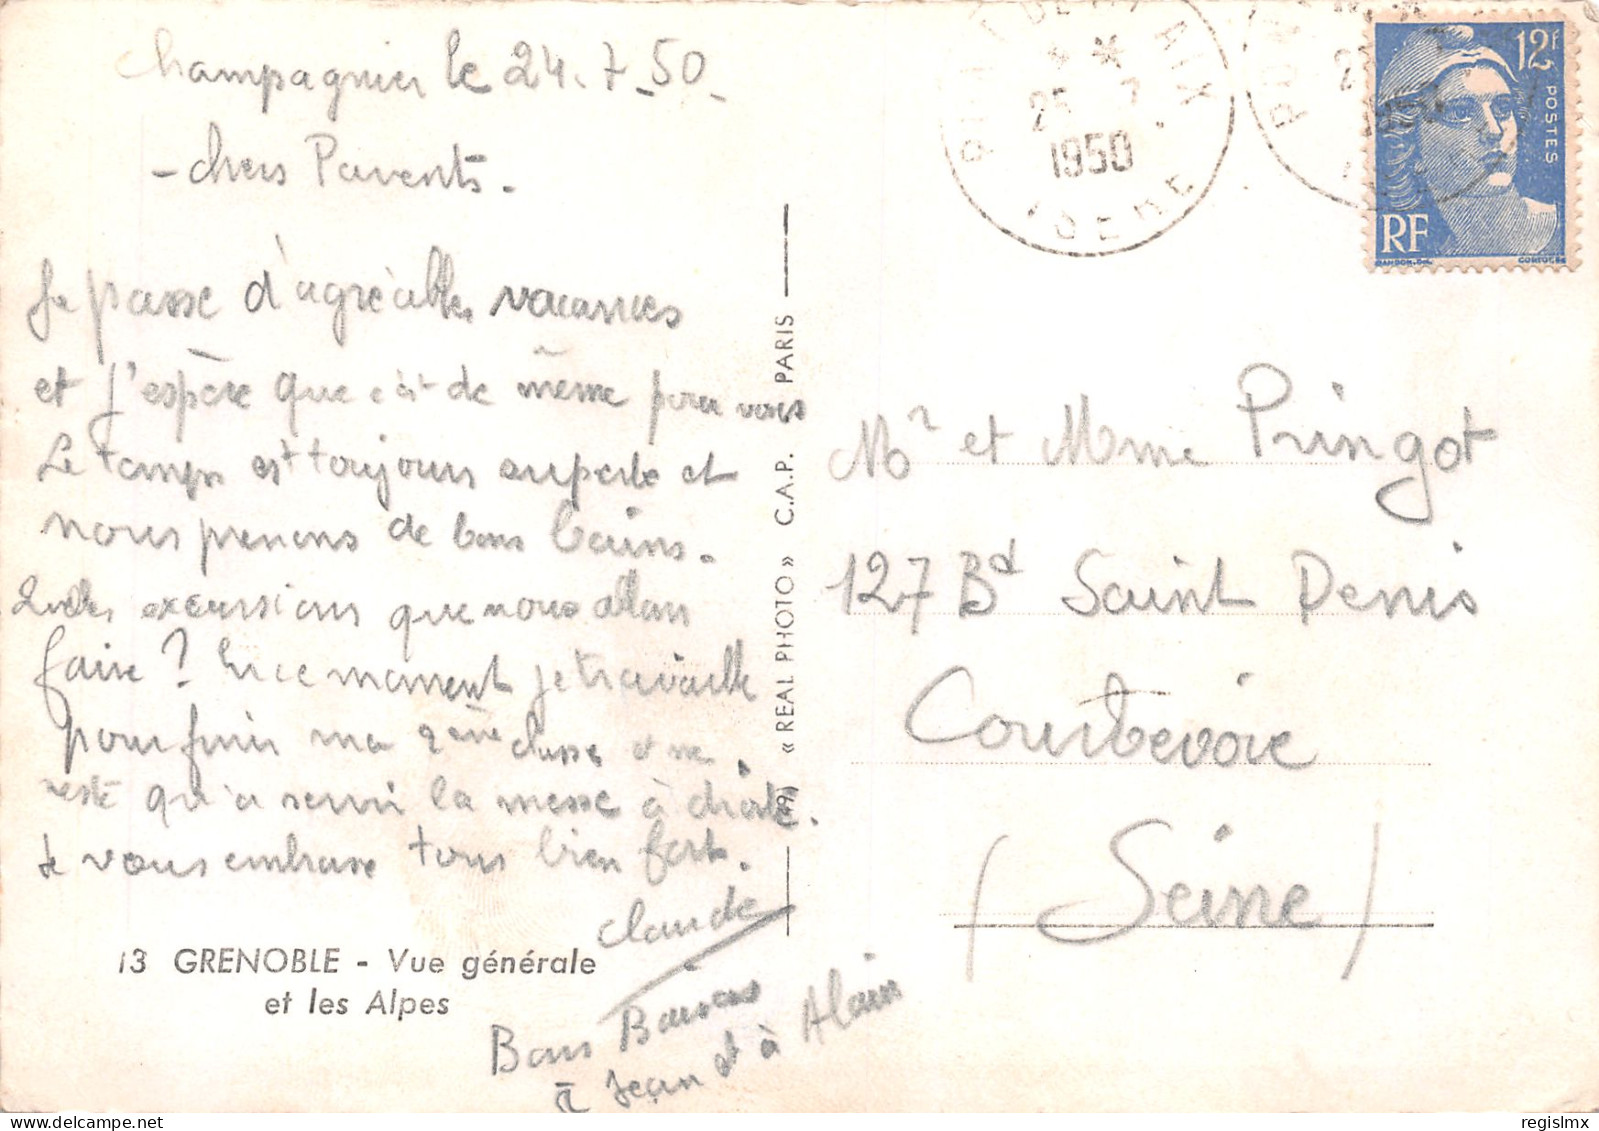 Champagnier le 24.7_50_
- chers Parents.
Je passe d'agréables vacances
et j'espère que c'est de même pour vous
Le temps est toujours superbe et
nous prenons de bons bains.
Quelles excursions que nous allons
faire ? En ce moment je travaille
pour finir ma 2ème classe et ne
reste qu'a servir la messe à droite.
Je vous embrasse tous bien fort.
Claude
Bons Baisers
à Jean et à Alain
13 GRENOBLE - Vue générale
et les Alpes
« REAL PHOTO » C.A.P. PARIS
PONT DE CLAIX
25 7
1950
ISERE
12F
POSTES
RF
GANDON.DEL.
CORTOT.SC
Mr et Mme Pringot
127 Bd Saint Denis
Courbevoie
(Seine)
regislmx